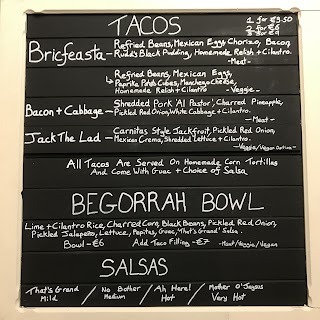 TACOS
1 for €3.50
2 for €6
3 for €9
Bricfeasta - Refried Beans, Mexican Eggs, Chorizo, Bacon,
Rudd's Black Pudding, Homemade Relish + Cilantro.
- Meat -
Refried Beans, Mexican Eggs,
Paprika Potato Cubes, Manchego Cheese,
Homemade Relish + Cilantro - Veggie -
Bacon + Cabbage - Shredded Pork 'Al Pastor', Charred Pineapple,
Pickled Red Onion, White Cabbage + Cilantro.
- Meat -
Jack The Lad - Carnitas Style Jackfruit, Pickled Red Onion,
Mexican Crema, Shredded Lettuce + Cilantro.
- Veggie/Vegan Option -
All Tacos Are Served On Homemade Corn Tortillas
And Come With Guac + Choice of Salsa
BEGORRAH BOWL
Lime + Cilantro Rice, Charred Corn, Black Beans, Pickled Red Onion,
Pickled Jalapeño, Lettuce, Pepitas, Guac, 'That's Grand' Salsa.
Bowl - €6 Add Taco Filling - €7 - Meat/Veggie/Vegan
SALSAS
That's Grand / No Bother / Ah Here! / Mother O'Jaysus
Mild Medium Hot Very Hot